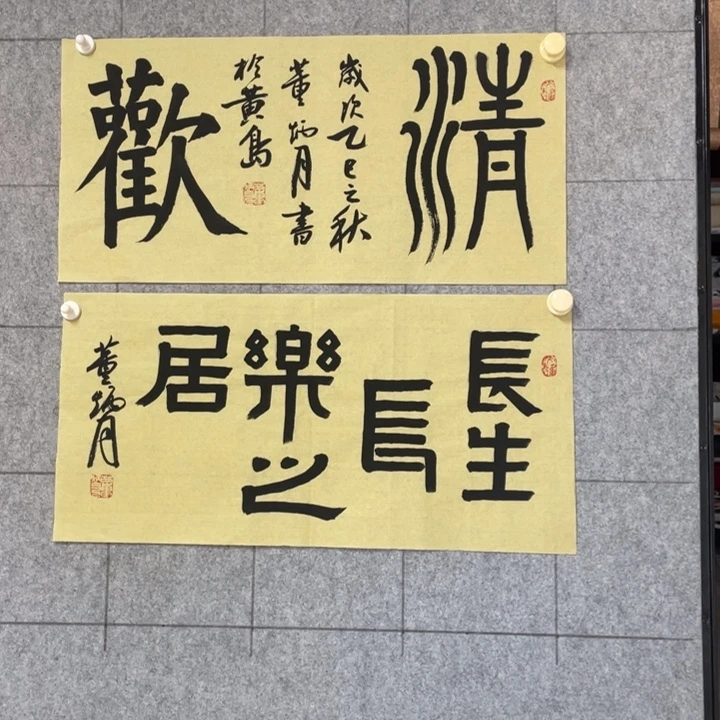 清
歲次乙巳之秋
董炳月書
於黄島
歡
長生
長
樂之
居
董炳月